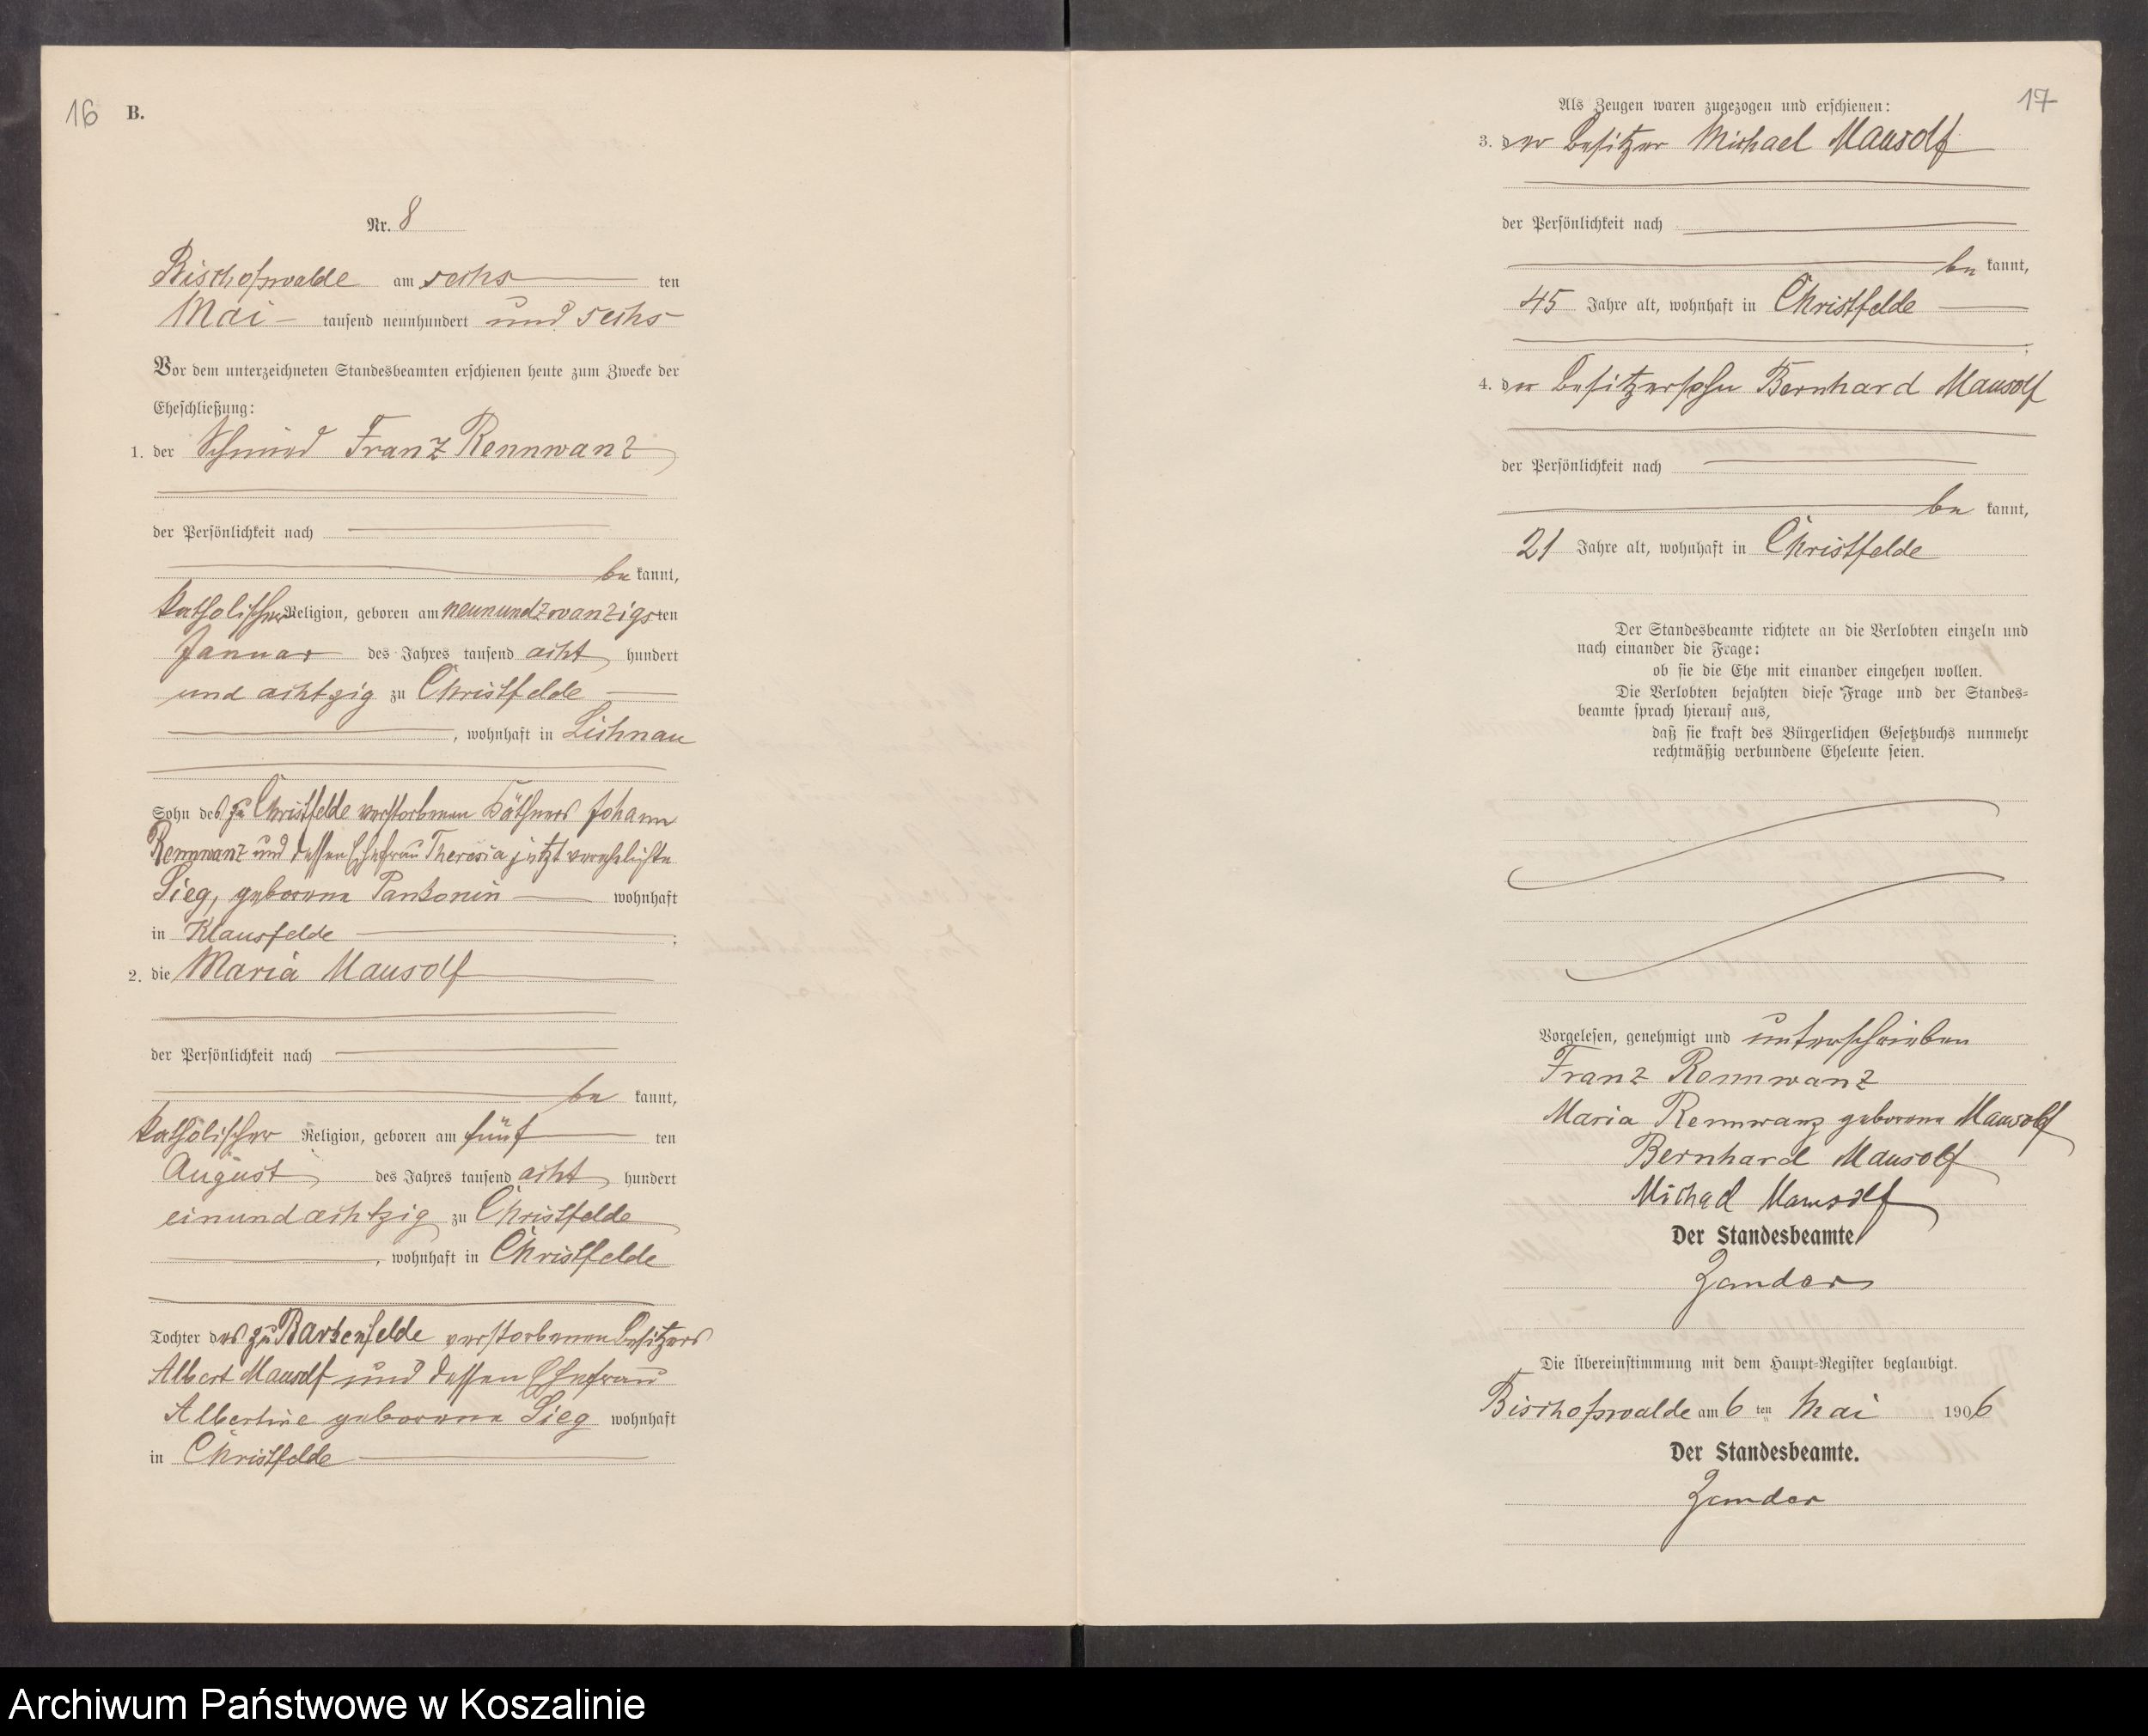 16 B.
Nr. 8
Bischofswalde am sechs ten
Mai tausend neunhundert und sechs
Vor dem unterzeichneten Standesbeamten erschienen heute zum Zwecke der
Eheschließung:
1. der Schmied Franz Rennwanz
der Persönlichkeit nach
be kannt,
katholischer Religion, geboren am neunundzwanzigsten
Januar des Jahres tausend acht hundert
und achtzig zu Christfelde
, wohnhaft in Lichnau
Sohn des zu Christfelde verstorbenen Käthners Johann
Rennwanz und dessen Ehefrau Theresia jetzt verehelichte
Sieg, geborene Panbonin wohnhaft
in Klausfelde ;
2. die Maria Mausolf
der Persönlichkeit nach
be kannt,
katholischer Religion, geboren am fünf ten
August des Jahres tausend acht hundert
einundachtzig zu Christfelde
, wohnhaft in Christfelde
Tochter des zu Barkenfelde verstorbenen Besitzers
Albert Mausolf und dessen Ehefrau
Albertine geborene Sieg wohnhaft
in Christfelde
17
Als Zeugen waren zugezogen und erschienen:
3. der Besitzer Michael Mausolf
der Persönlichkeit nach
be kannt,
45 Jahre alt, wohnhaft in Christfelde
;
4. der Besitzersohn Bernhard Mausolf
der Persönlichkeit nach
be kannt,
21 Jahre alt, wohnhaft in Christfelde
Der Standesbeamte richtete an die Verlobten einzeln und
nach einander die Frage:
ob sie die Ehe mit einander eingehen wollen.
Die Verlobten bejahten diese Frage und der Standes=
beamte sprach hierauf aus,
daß sie kraft des Bürgerlichen Gesetzbuchs nunmehr
rechtmäßig verbundene Eheleute seien.
Vorgelesen, genehmigt und unterschrieben
Franz Rennwanz
Maria Rennwanz geborene Mausolf
Bernhard Mausolf
Michael Mausolf
Der Standesbeamte
Zander
Die Übereinstimmung mit dem Haupt=Register beglaubigt.
Bischofswalde am 6 ten Mai 1906
Der Standesbeamte.
Zander
Archiwum Państwowe w Koszalinie